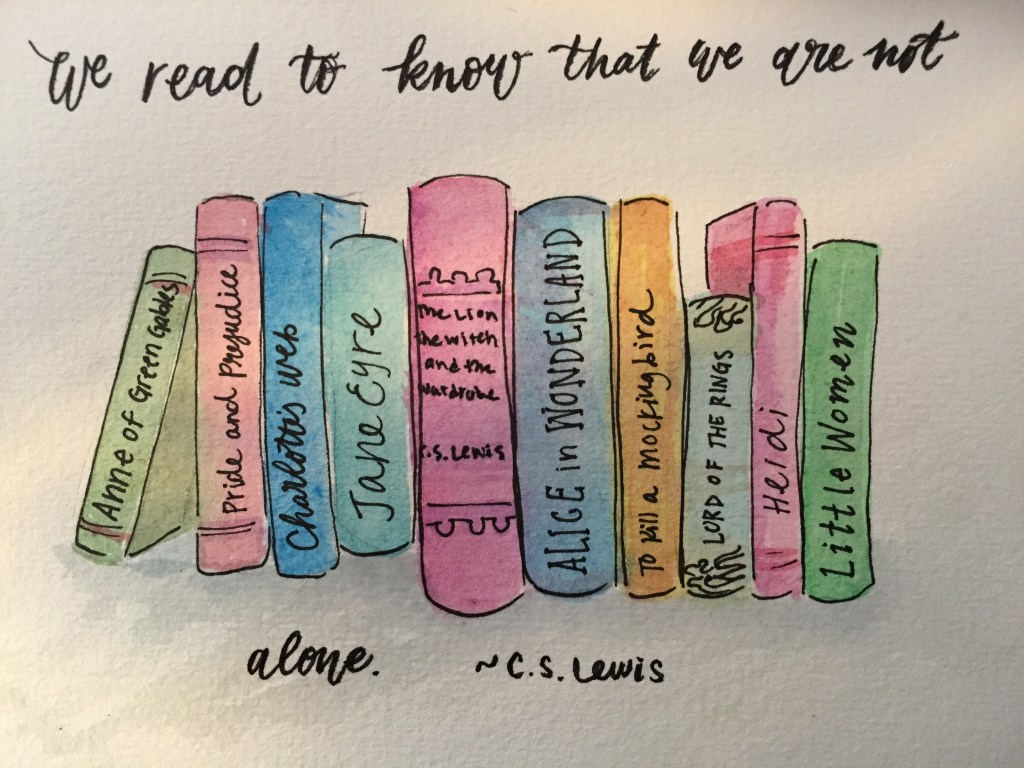 We read to know that we are not
Anne of Green Gables
Pride and Prejudice
Charlotte's Web
Jane Eyre
The Lion
the witch
and the
wardrobe
C.S. Lewis
ALICE in WONDERLAND
To Kill a mockingbird
LORD OF THE RINGS
Heidi
Little Women
alone.
~ C.S. Lewis